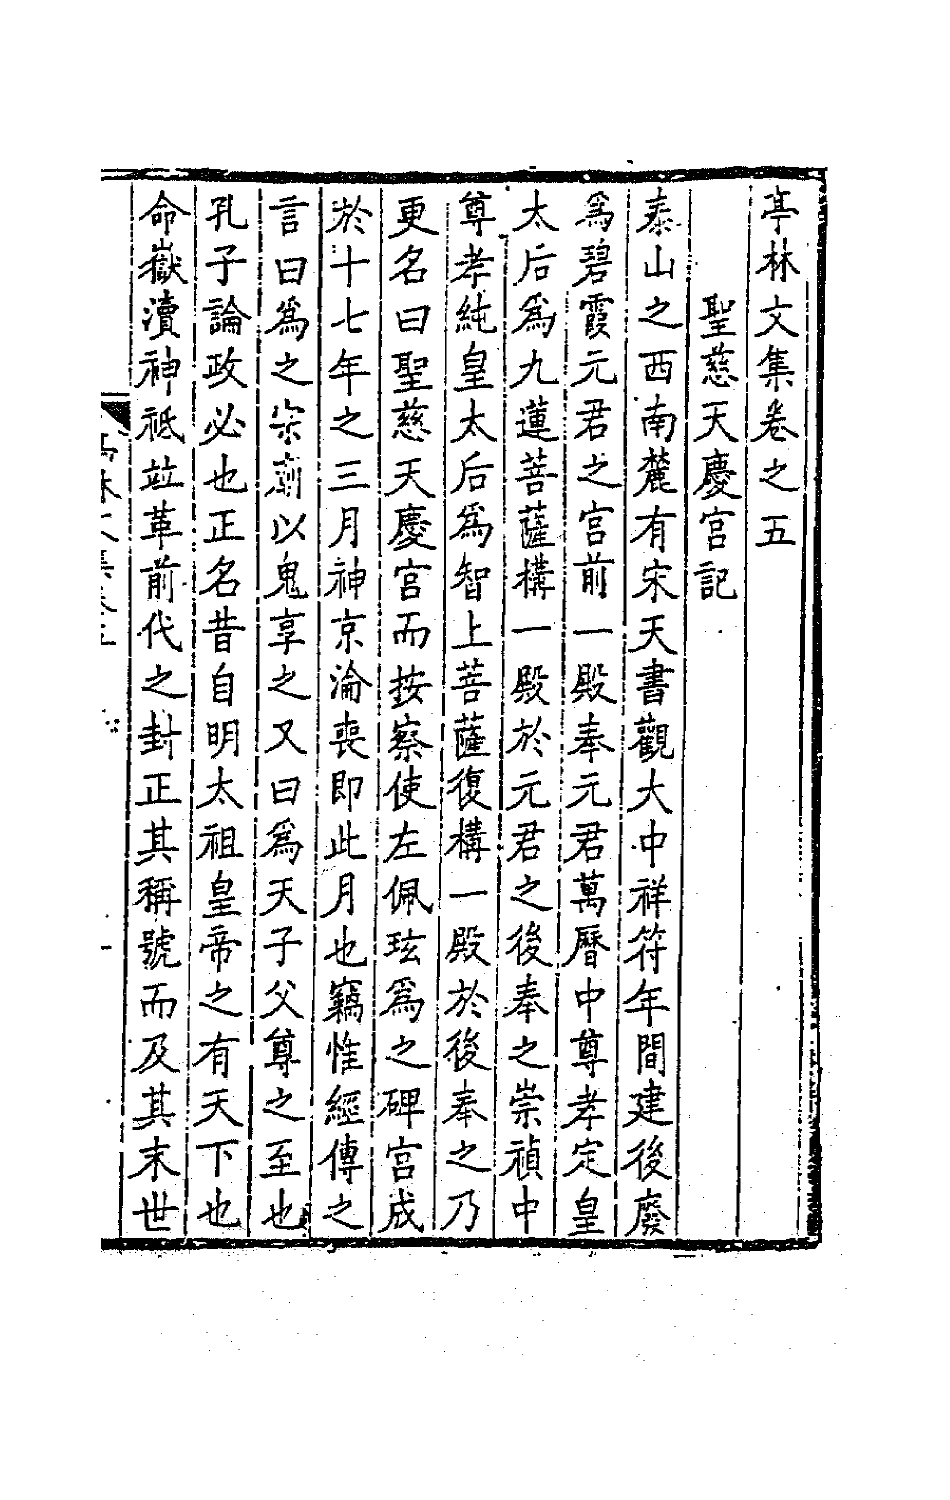 亭林文集卷之五
聖慈天慶宫記
泰山之西南麓有宋天書觀大中祥符年間建後廢
爲碧霞元君之宫前一殿奉元君萬曆中尊孝定皇
太后爲九蓮菩薩構一殿於元君之後奉之崇禎中
尊孝純皇太后爲智上菩薩復構一殿於後奉之乃
更名曰聖慈天慶宫而按察使左佩玹爲之碑宫成
於十七年之三月神京淪喪即此月也竊惟經傳之
言曰爲之宗廟以鬼享之又曰爲天子父尊之至也
孔子論政必也正名昔自明太祖皇帝之有天下也
命嶽瀆神祗竝革前代之封正其稱號而及其末世